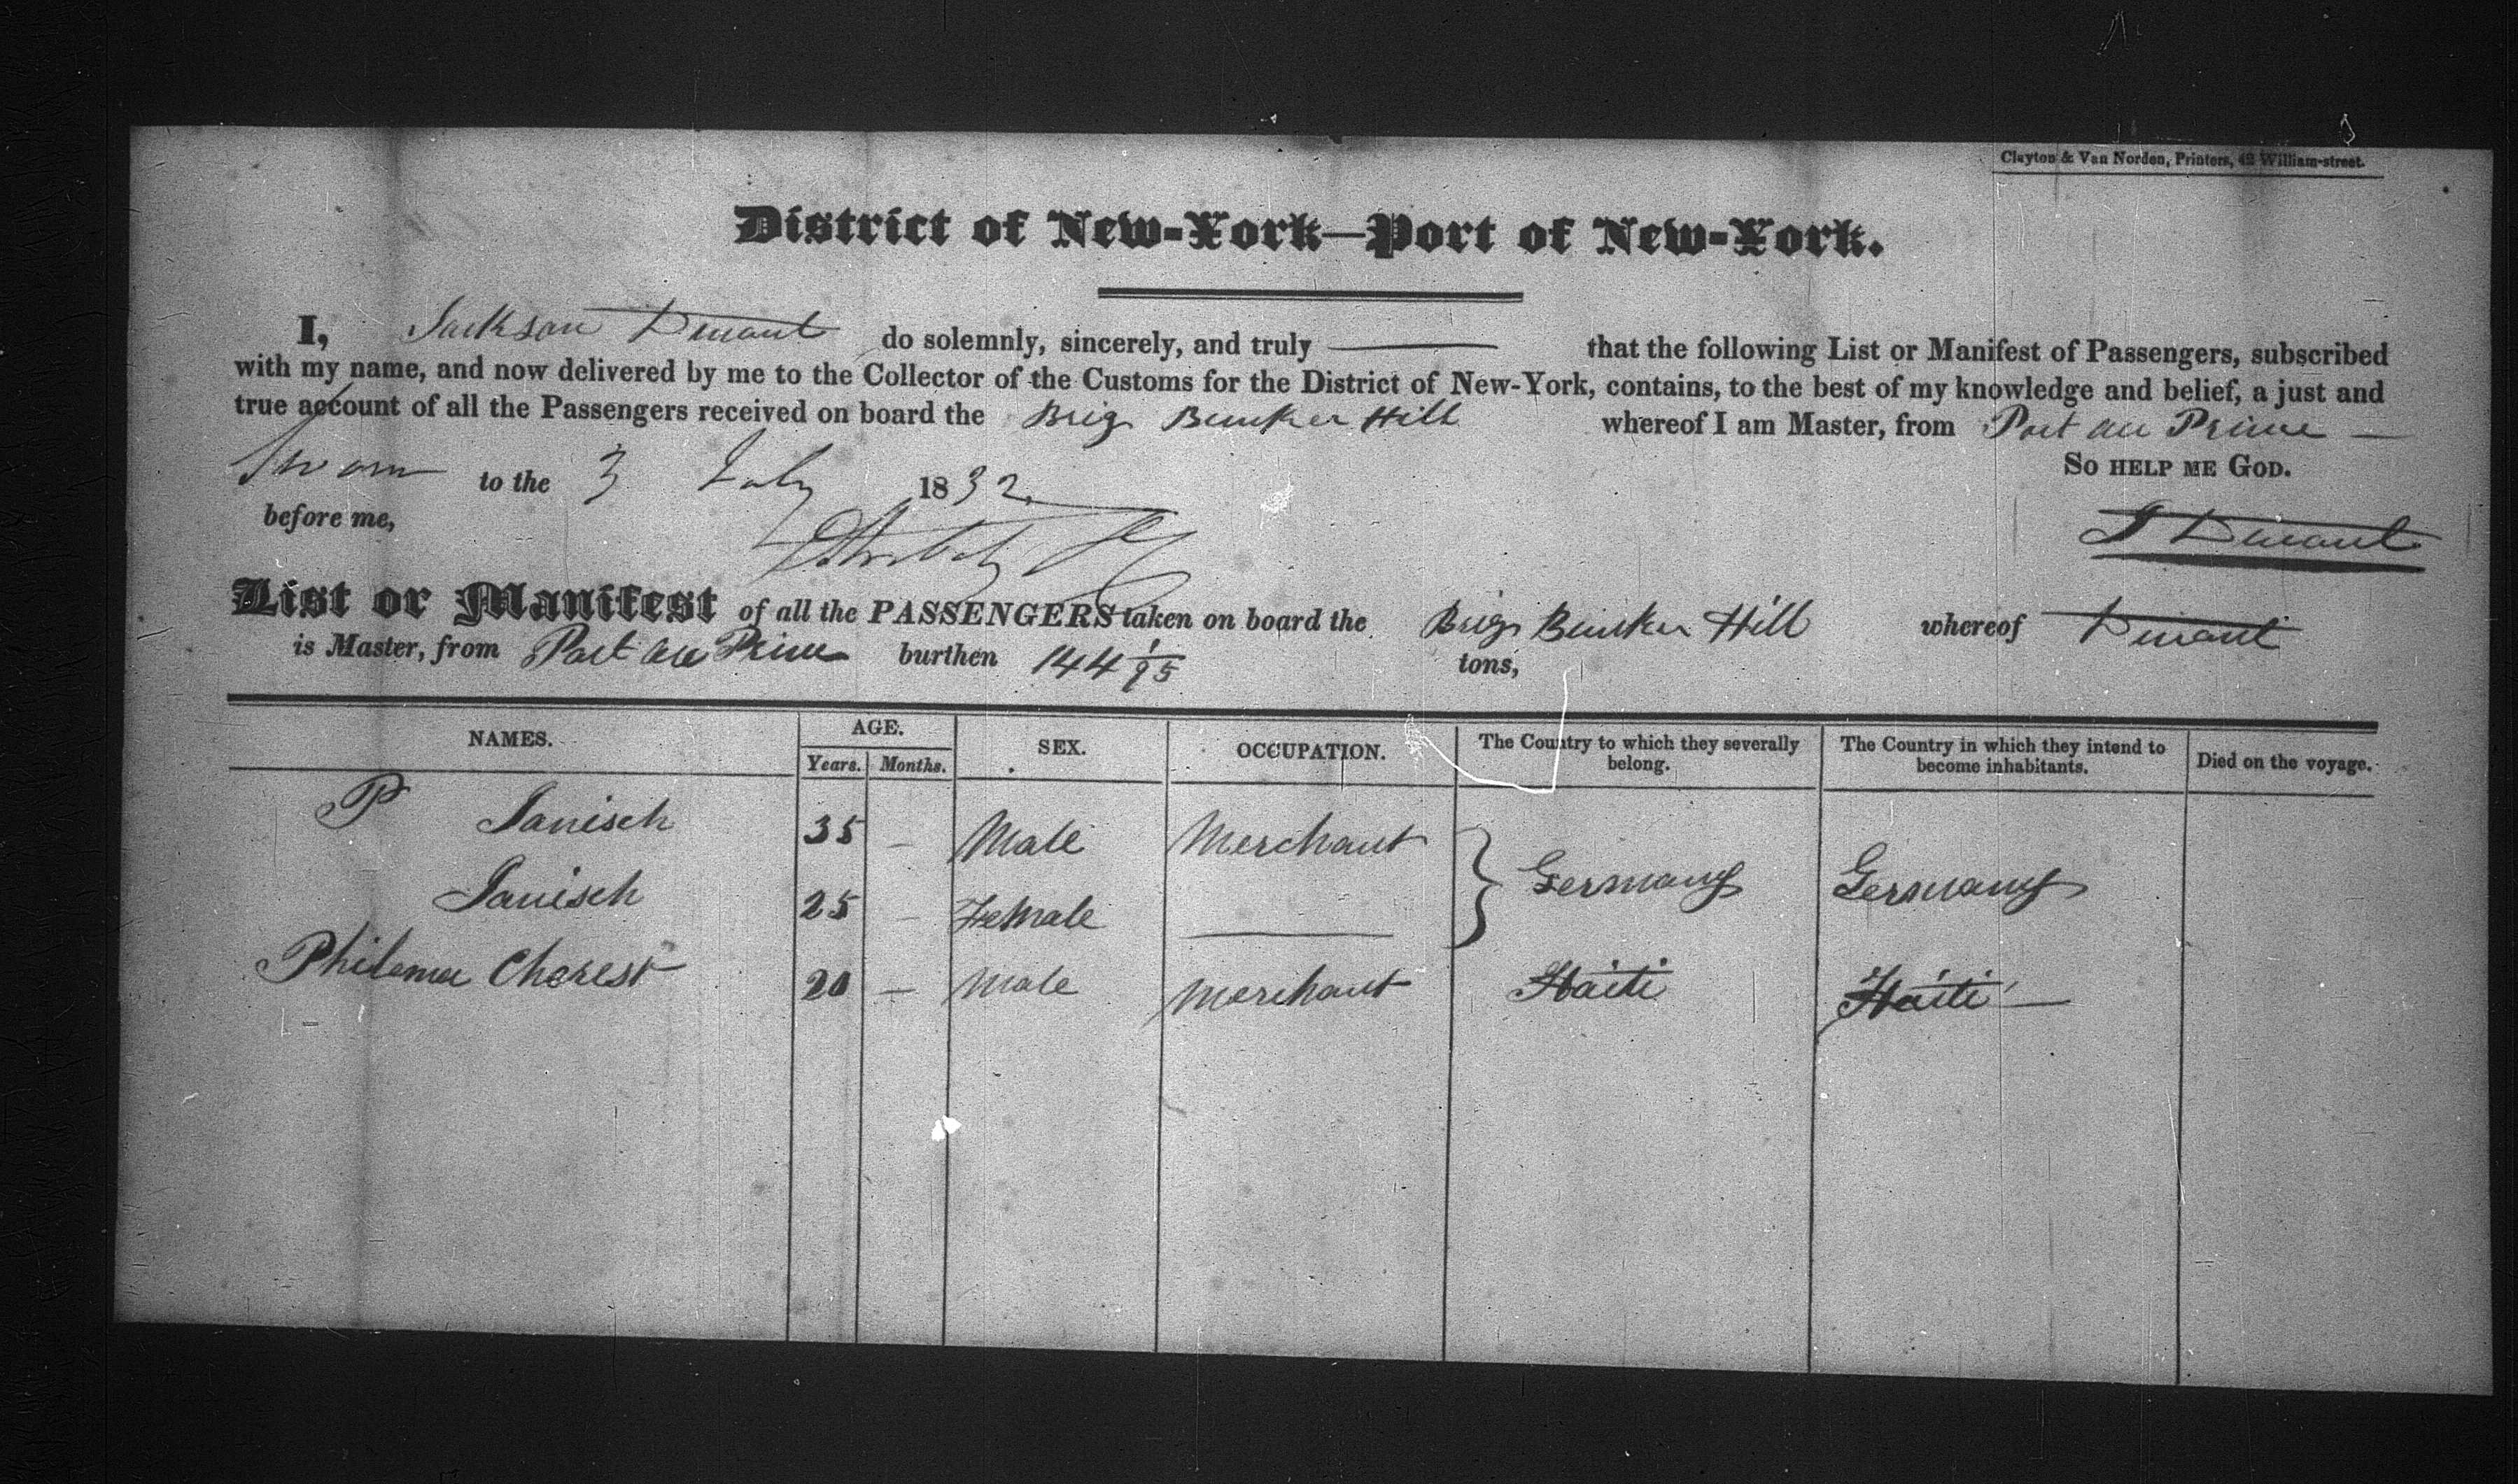 Clayton & Van Norden, Printers, 42 William-street.
District of New-York—Port of New-York.
I, Jackson Durant do solemnly, sincerely, and truly —— that the following List or Manifest of Passengers, subscribed
with my name, and now delivered by me to the Collector of the Customs for the District of New-York, contains, to the best of my knowledge and belief, a just and
true account of all the Passengers received on board the Brig Bunker Hill whereof I am Master, from Port au Prince —
So help me God.
Sworn to the 3 July 1832
before me,
J Durant
List or Manifest of all the PASSENGERS taken on board the Brig Bunker Hill whereof Durant
is Master, from Port au Prince burthen 144 1/95 tons,
NAMES. AGE. Years. Months. SEX. OCCUPATION. The Country to which they severally belong. The Country in which they intend to become inhabitants. Died on the voyage.
P Janisch 35 — Male Merchant
Janisch 25 — Female —— } Germany Germany
Philoma Cherest 20 — Male Merchant Haiti Haiti —